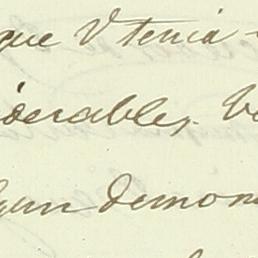 que V tenia
iderables,
gun demon